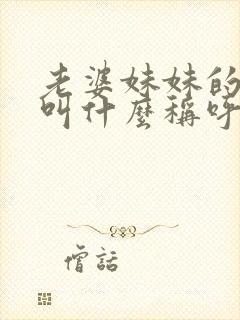 老婆妹妹的
叫什麼稱呼
僧話